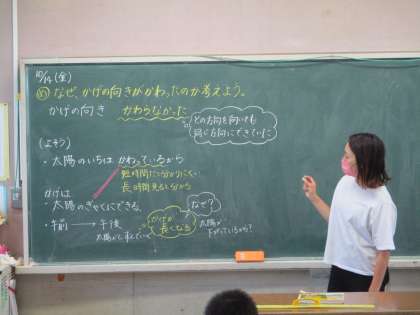 10/14(金)
め なぜ、かげの向きがかわったのか考えよう。
かげの向き かわらなかった
どの方向を向いても
同じ方向にできていた
(よそう)
・太陽のいちはかわっているから
短時間だと分かりにくい
長時間見ると分かる
かげは
・太陽のぎゃくにできる。
なぜ?
・午前 → 午後
かげが
長くなる
太陽が
下がっているから?